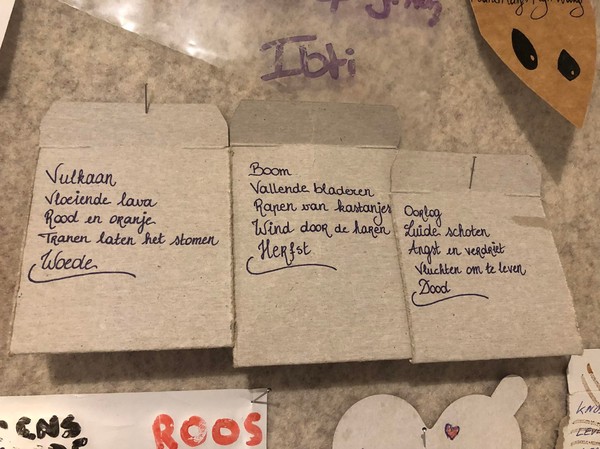 Ibti
Vulkaan
Vloeiende lava
Rood en oranje
Tranen laten het stomen
Woede
Boom
Vallende bladeren
Rapen van kastanjes
Wind door de haren
Herfst
Oorlog
Luide schoten
Angst en verdriet
Vluchten om te leven
Dood
ROOS